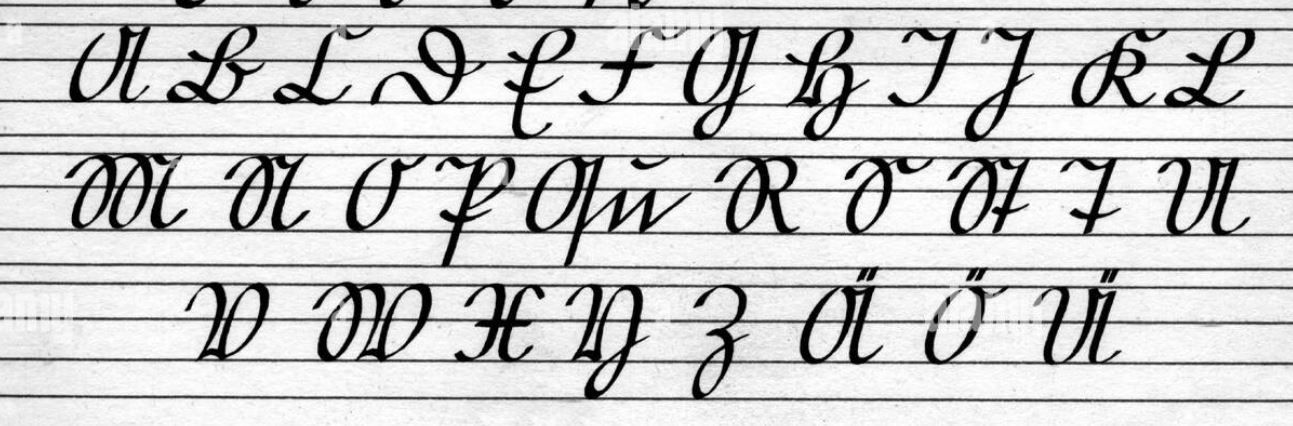 A B C D E F G H I J K L
M N O P Qu R S St T U
V W X Y Z Ä Ö Ü